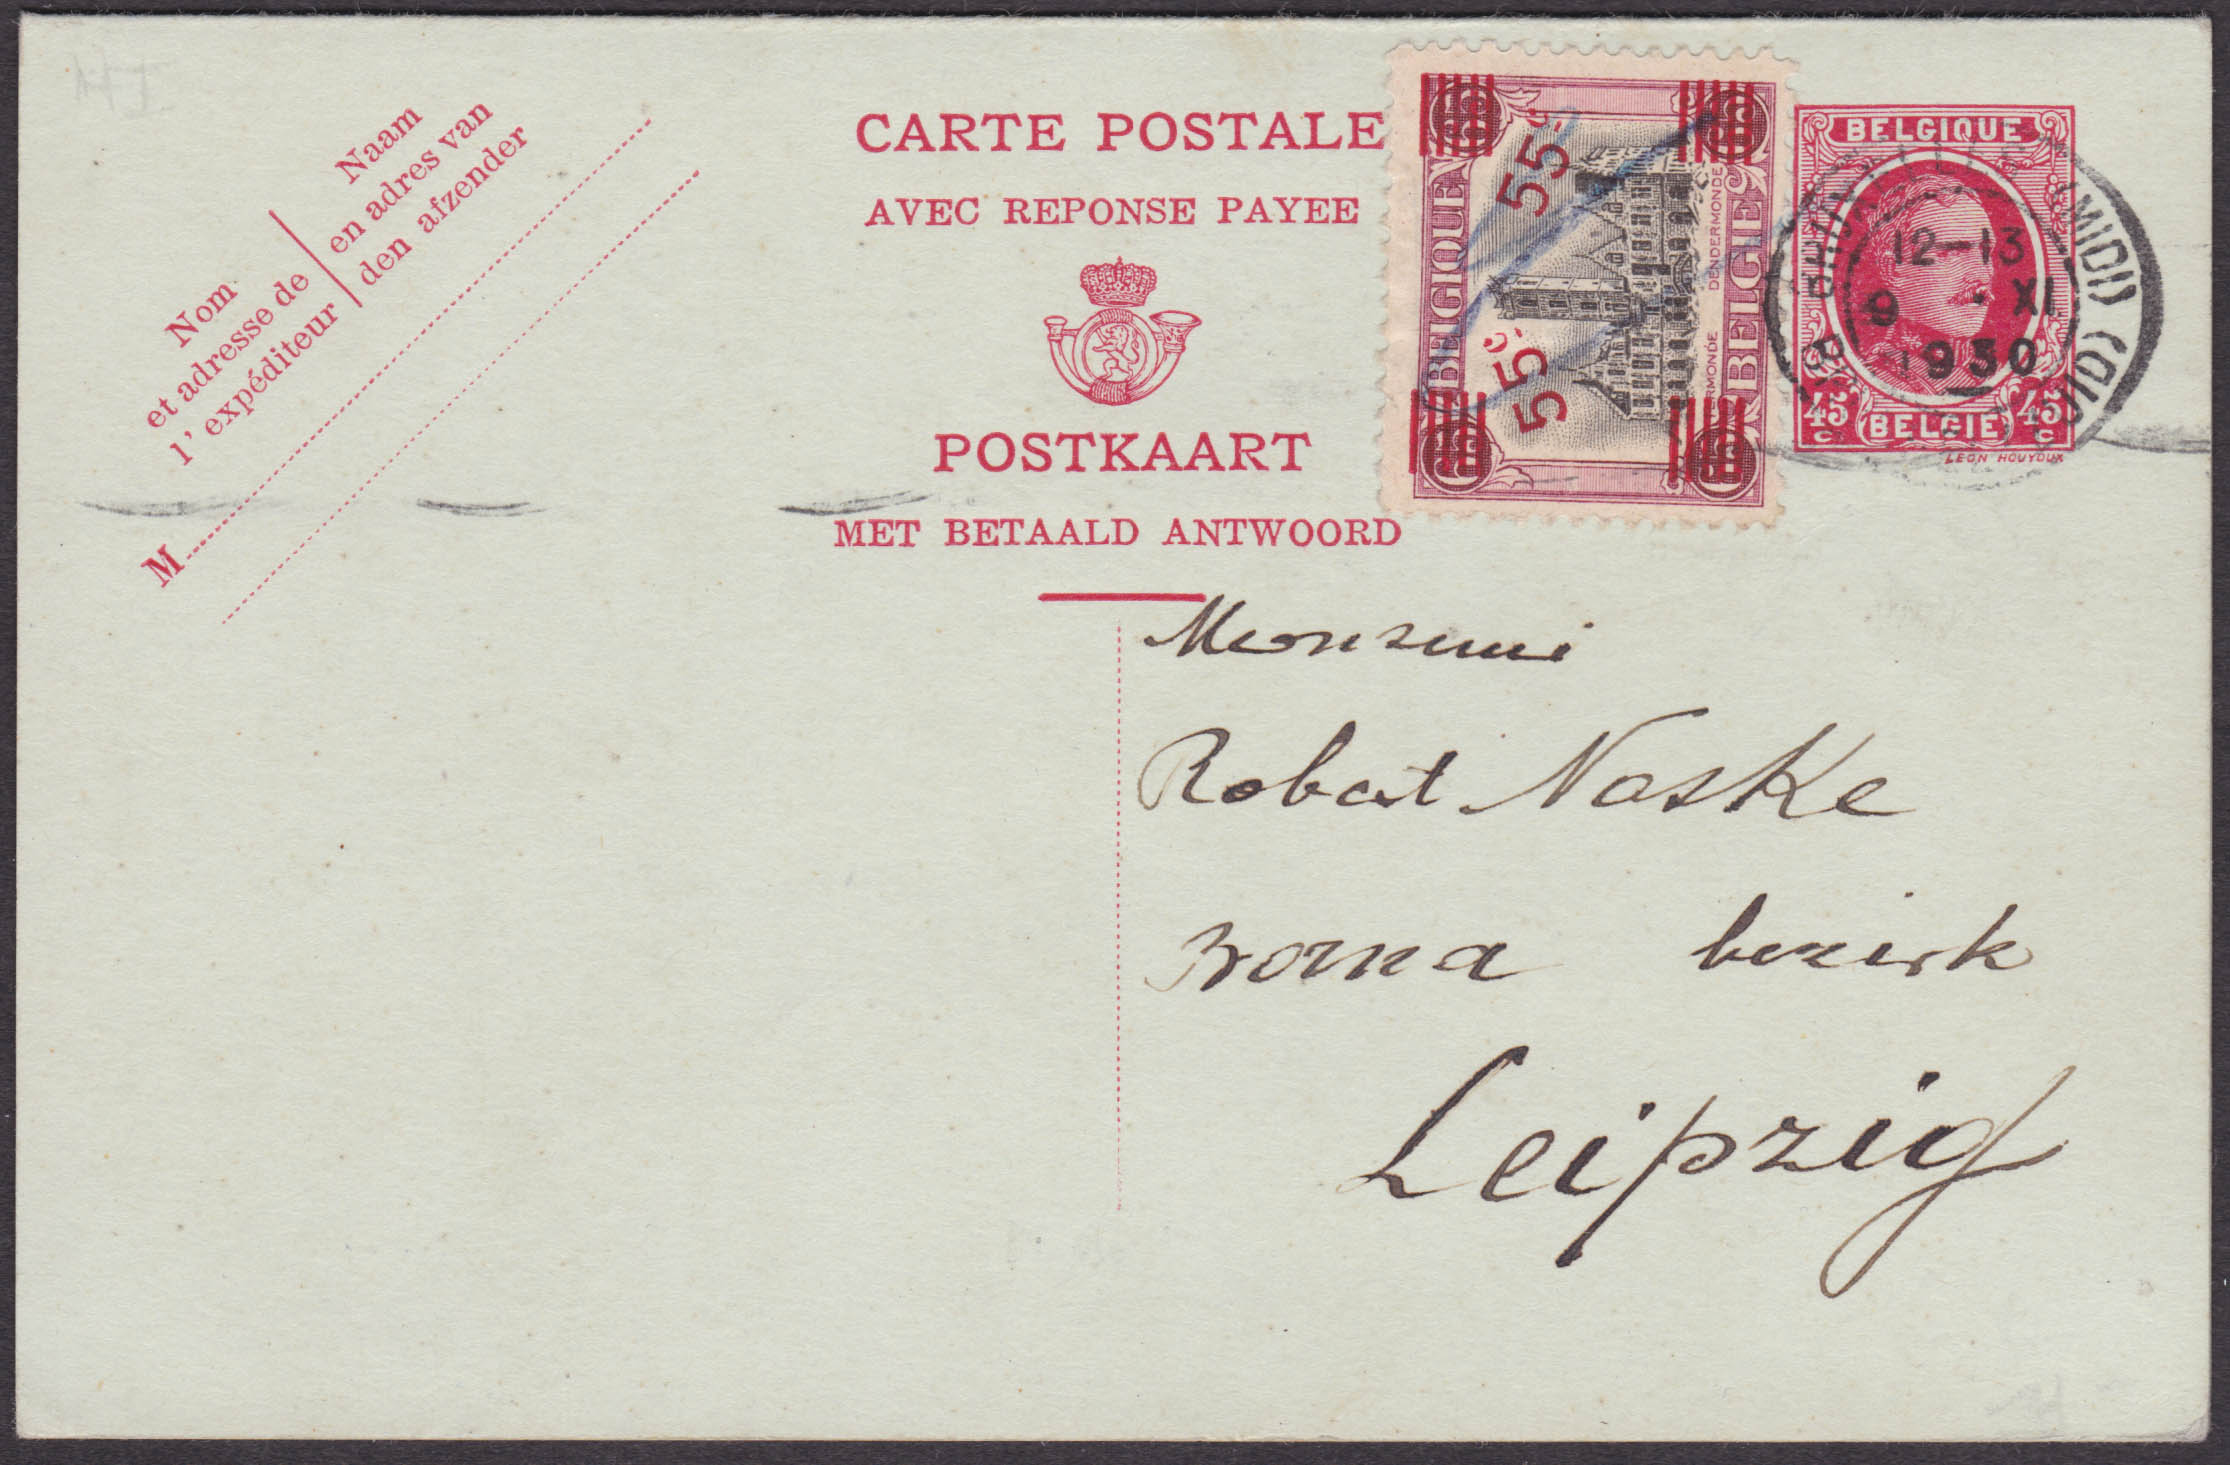 CARTE POSTALE
AVEC REPONSE PAYEE
POSTKAART
MET BETAALD ANTWOORD
Nom
et adresse de
l'expéditeur
Naam
en adres van
den afzender
M
BELGIQUE
55c
55c
DENDERMONDE
TERMONDE
BELGIE
BELGIQUE
45 c
BELGIE
45 c
LEON HOUYOUX
(MIDI)
12-13
9 · XI
1930
(ZUID)
Monsieur
Robert Noske
Borna bezirk
Leipzig